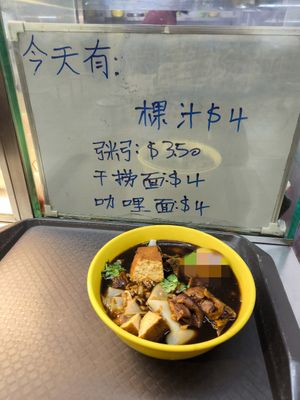 今天有:
粿汁$4
粥:$3.50
干捞面:$4
咖哩面:$4